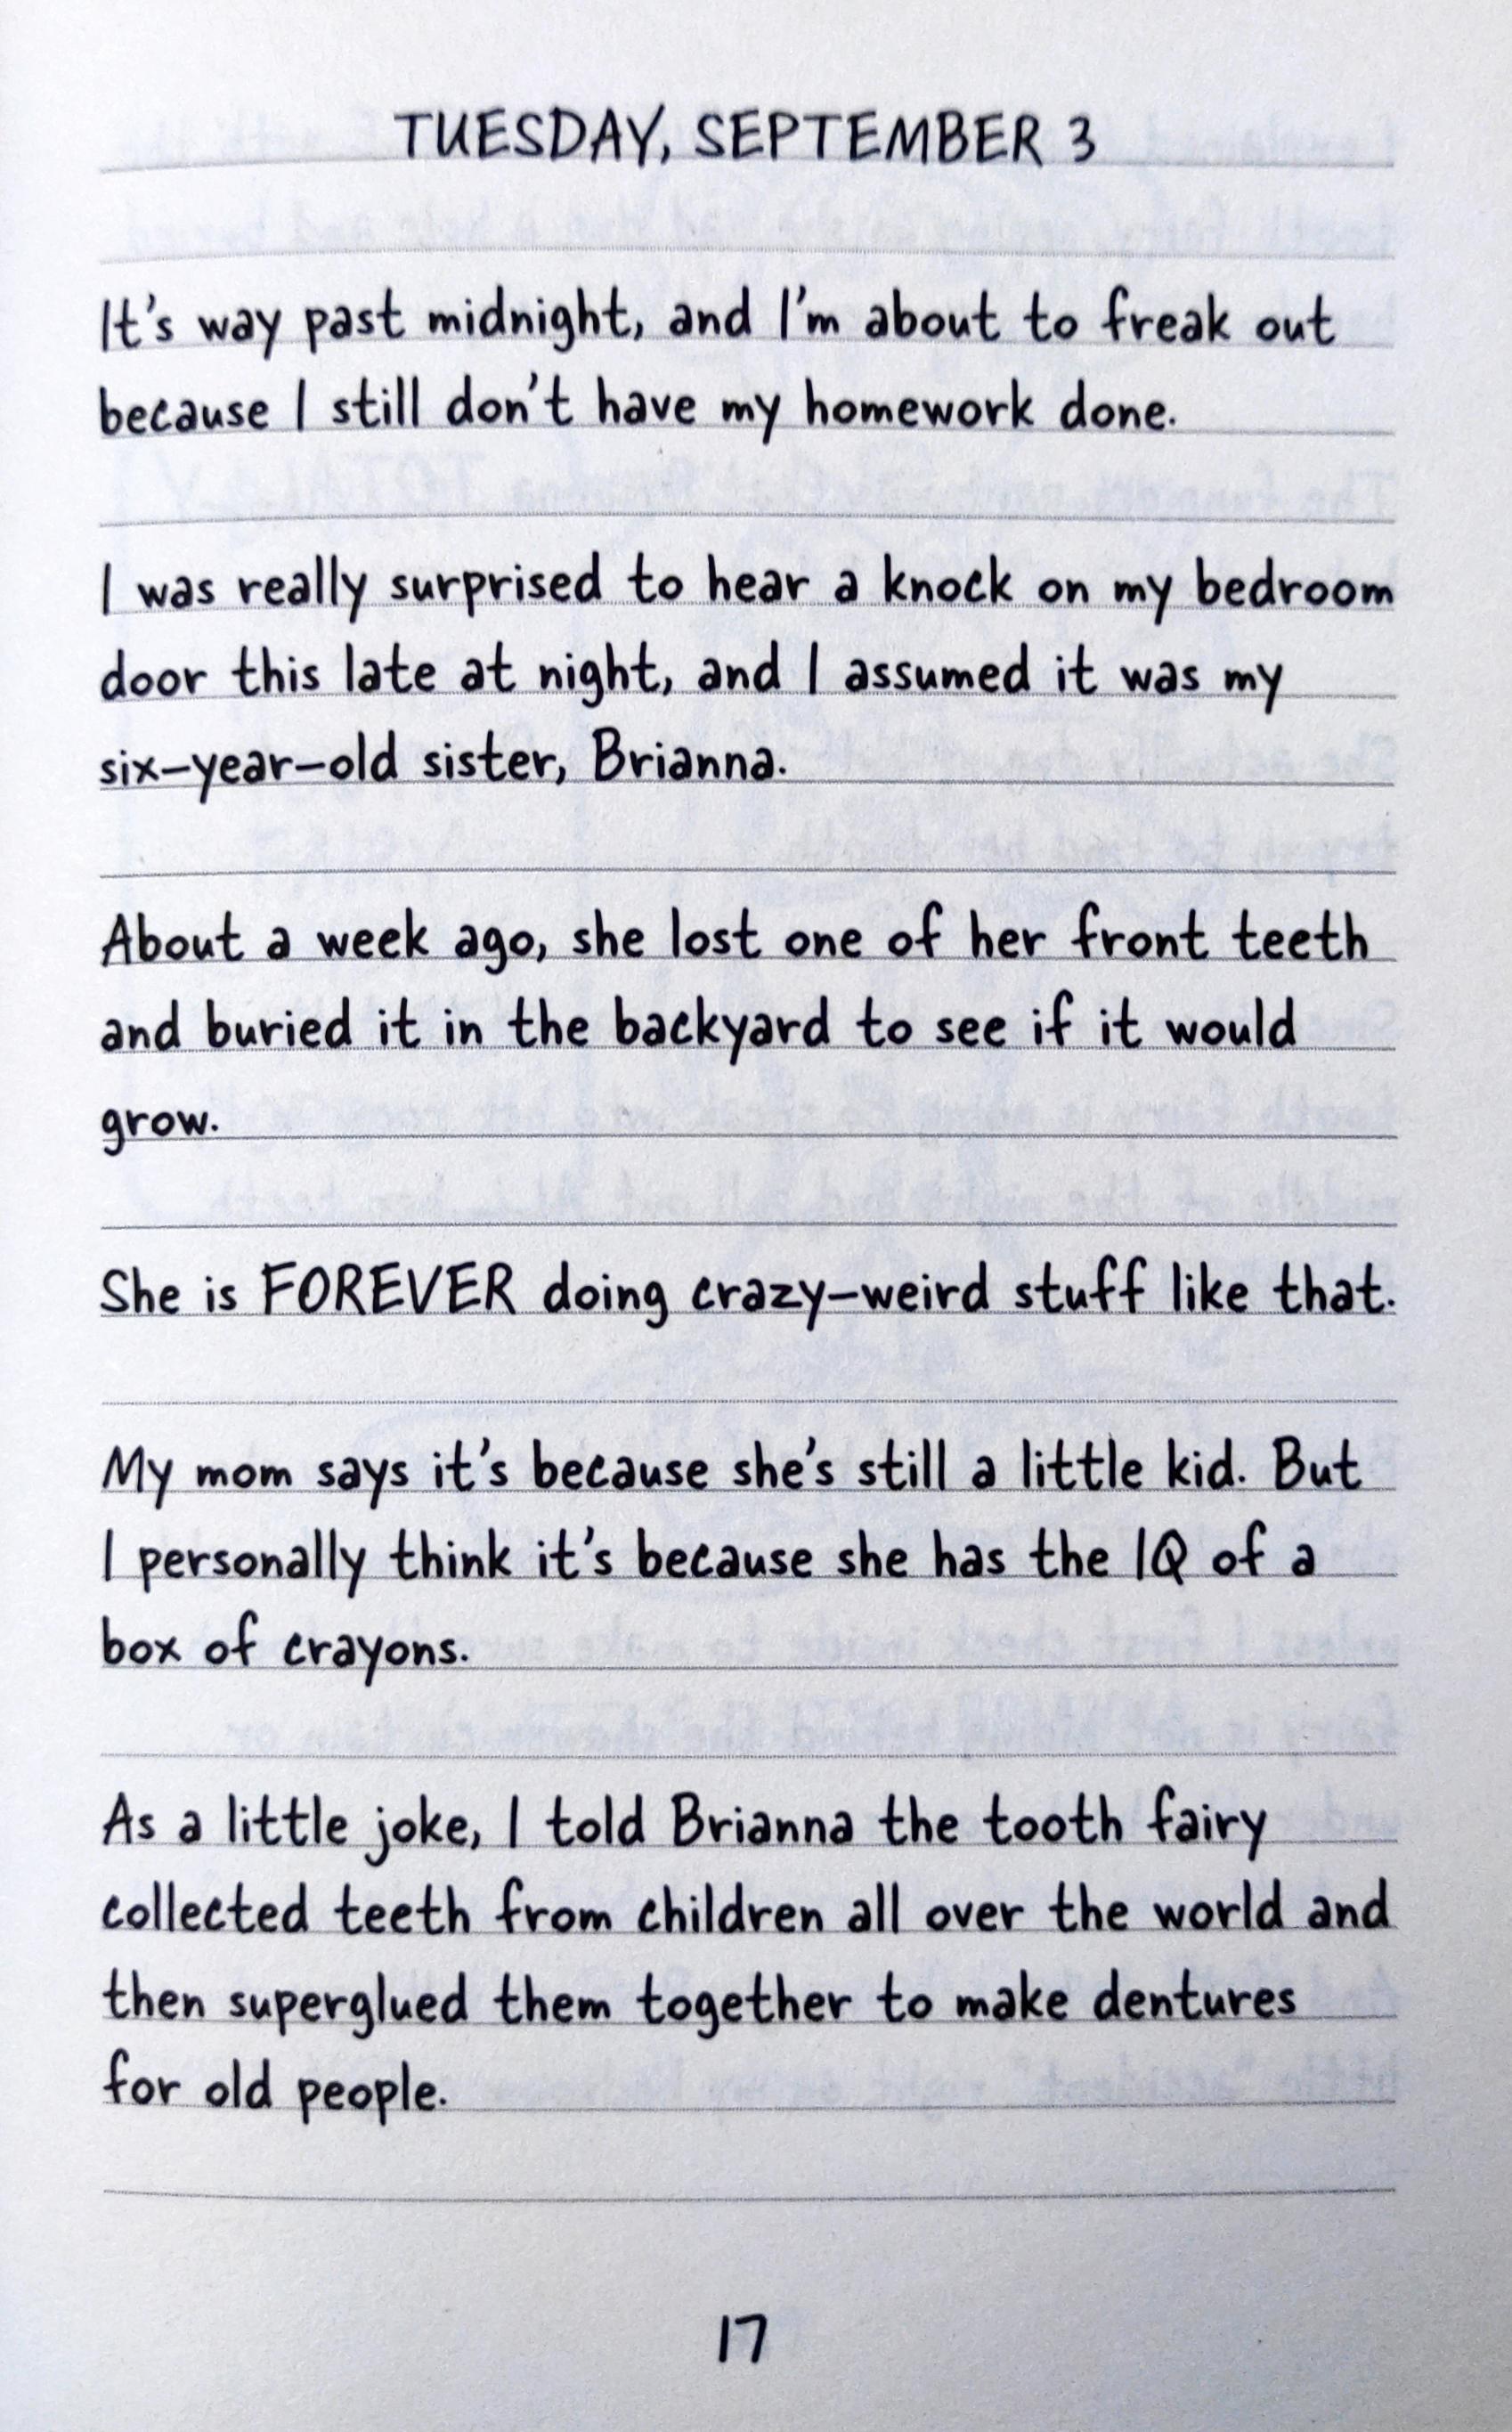 TUESDAY, SEPTEMBER 3
It's way past midnight, and I'm about to freak out
because I still don't have my homework done.
I was really surprised to hear a knock on my bedroom
door this late at night, and I assumed it was my
six-year-old sister, Brianna.
About a week ago, she lost one of her front teeth
and buried it in the backyard to see if it would
grow.
She is FOREVER doing crazy-weird stuff like that.
My mom says it's because she's still a little kid. But
I personally think it's because she has the IQ of a
box of crayons.
As a little joke, I told Brianna the tooth fairy
collected teeth from children all over the world and
then superglued them together to make dentures
for old people.
17